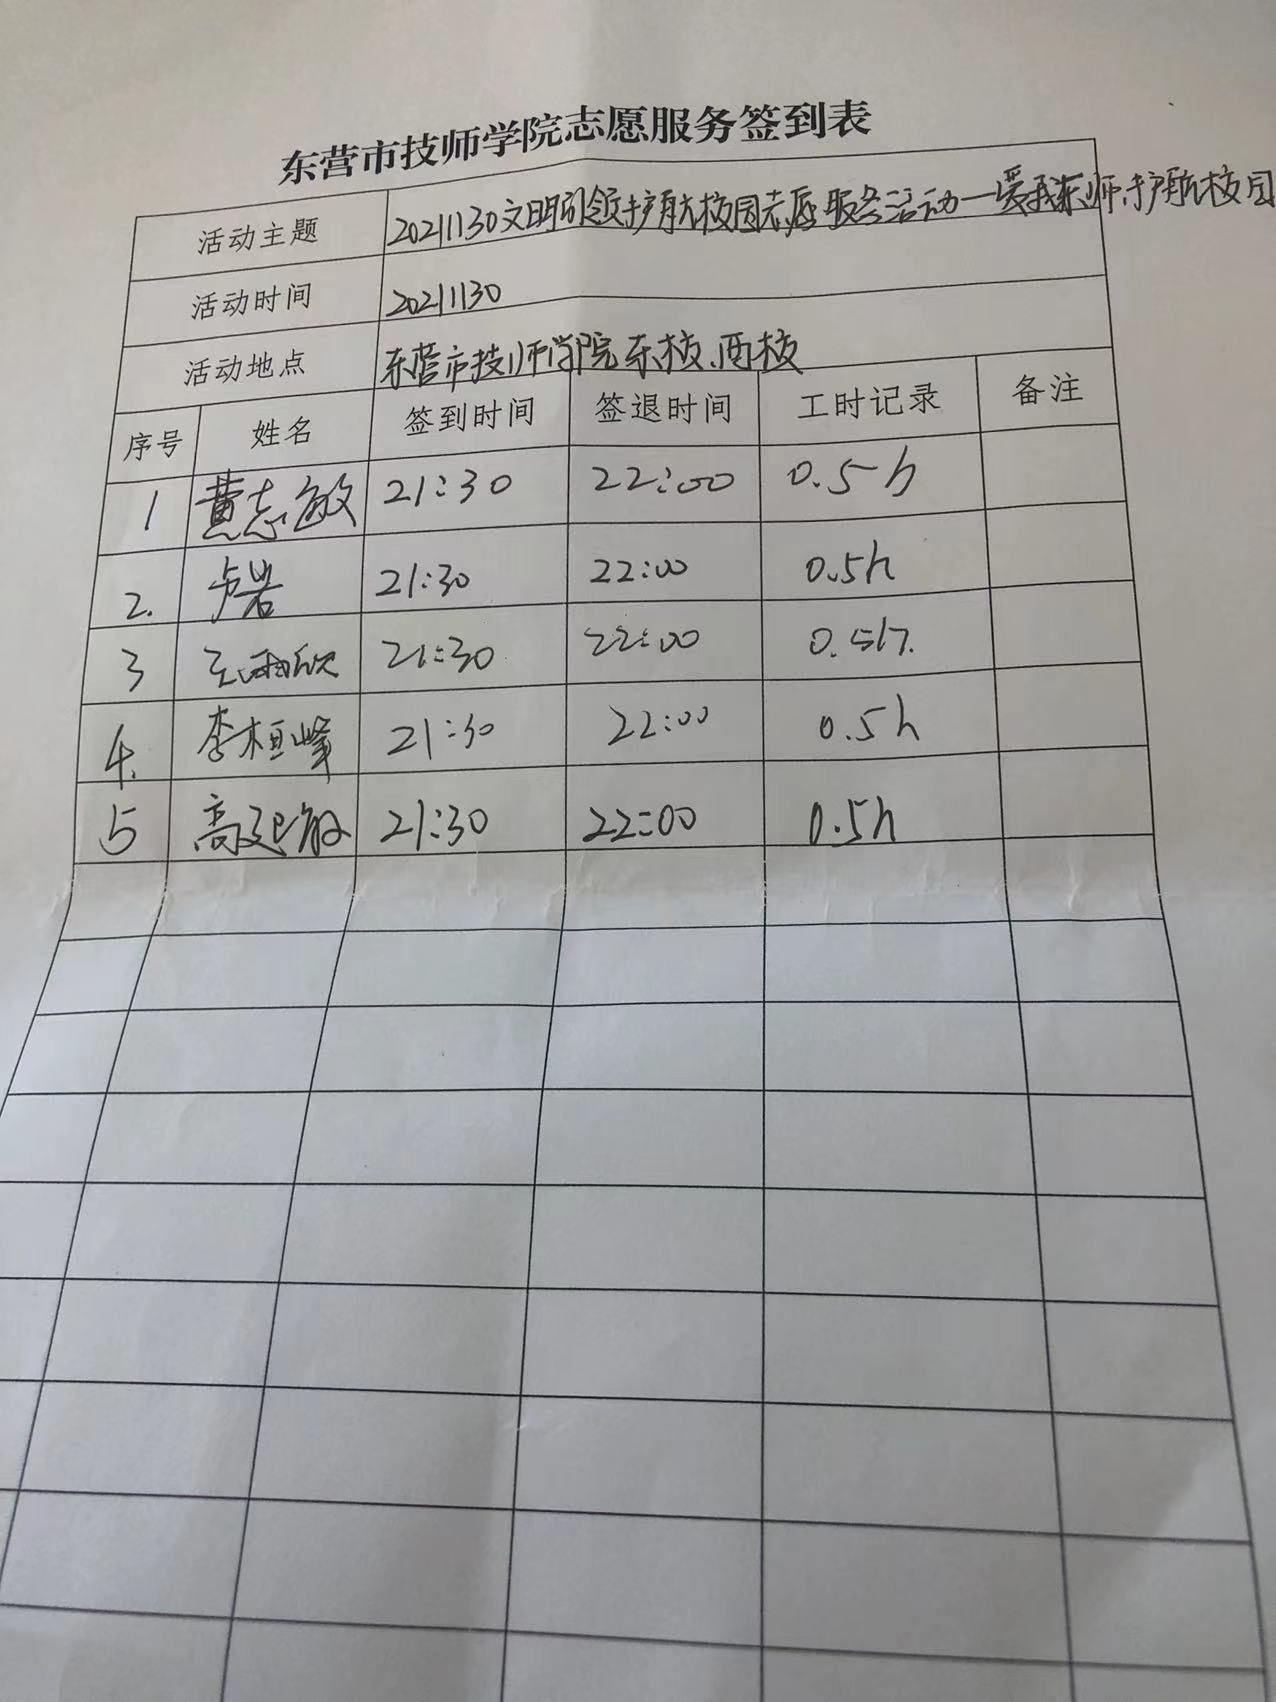 东营市技师学院志愿服务签到表
活动主题 20211130文明引领护航校园志愿服务活动—爱我东师护航校园
活动时间 20211130
活动地点 东营市技师学院东校、西校
序号 姓名 签到时间 签退时间 工时记录 备注
1 黄志敏 21:30 22:00 0.5h
2. 卢岩 21:30 22:00 0.5h
3 21:30 22:00 0.5h.
4. 李桓峰 21:30 22:00 0.5h
5 高延敏 21:30 22:00 0.5h